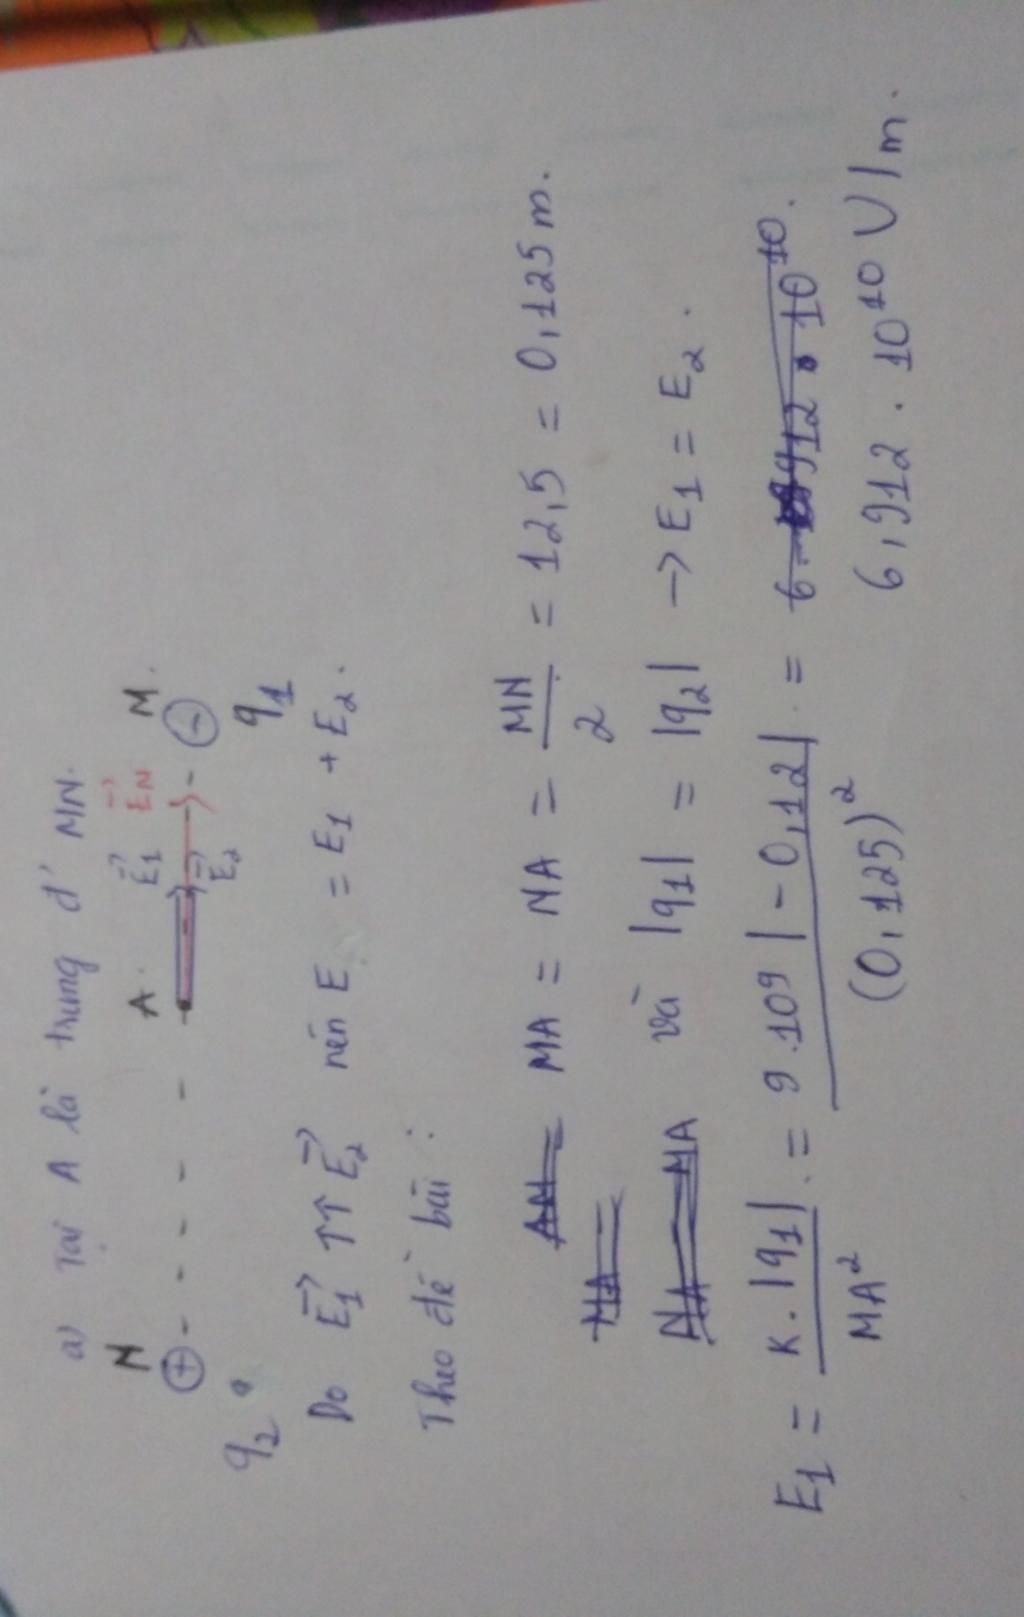 a) Tại A là trung đ' MN.
N A. E₁ E_N M.
E₂
q₂ q₁
Do E₁ ↑↑ E₂ nên E = E₁ + E₂.
Theo đề bài :
MA = NA = MN/2 = 12,5 = 0,125 m.
và |q₁| = |q₂| → E₁ = E₂.
E₁ = K.|q₁|/MA² = 9.10⁹|-0,12|/(0,125)² = 6,912 . 10¹⁰.
6,912 . 10¹⁰ V/m.